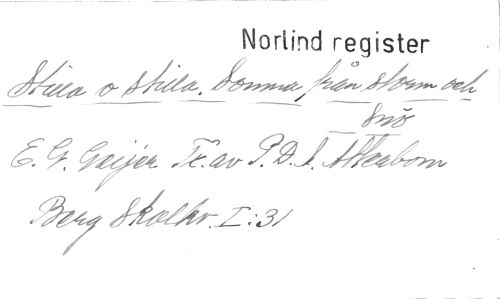 Norlind register
Stilla o stilla. Somna från storm och
snö
E. G. Geijer Tk. av P. D. A. Atterbom
Berg Skolkv. I:31